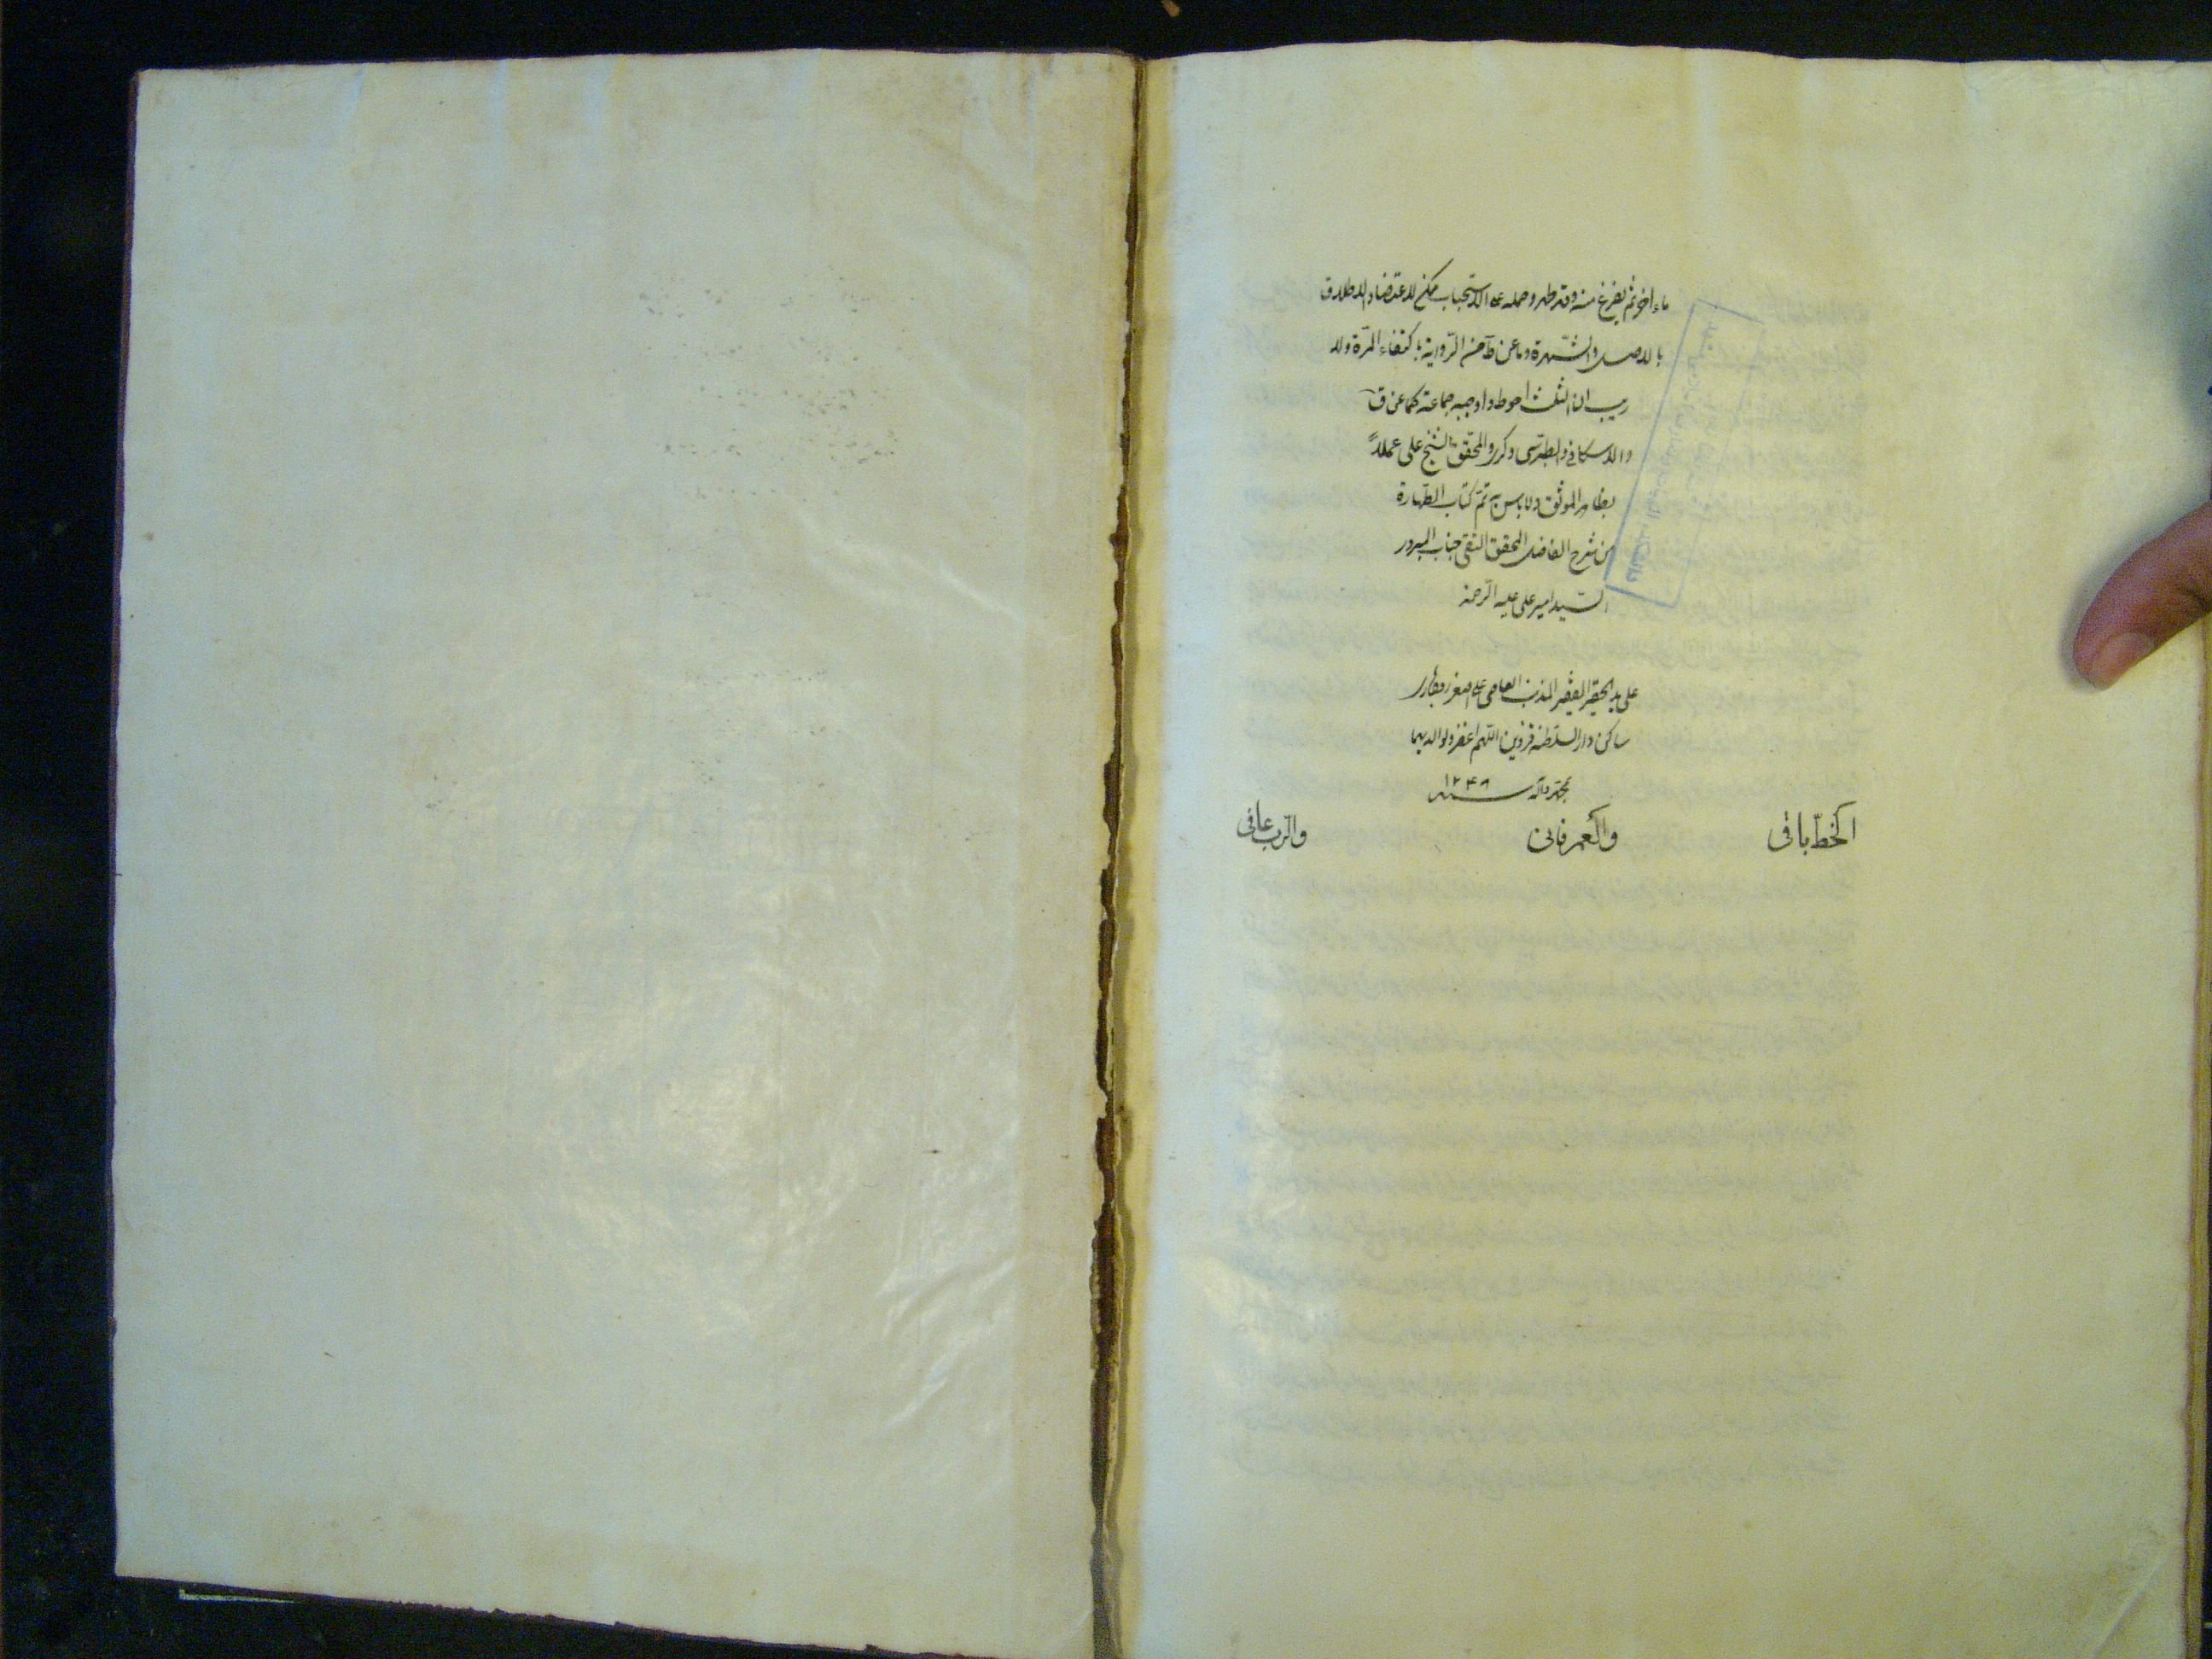 ماء اخر ثم يفرغ منه وقد طهر وحمله على الاستحباب ممكن لاعتضاد الاطلاق
بالاصل والشهرة وما عن ط من الرواية باكتفاء المرة ولا
ريب ان الثلث احوط واوجبه جماعة كما عن ق
والاسكافى والطبرسى وكرى والمحقق الشيخ على عملاً
بظاهر الموثق ولا باس به تم كتاب الطهارة
من شرح الفاضل المحقق التقى جناب المبرور
السيد امير على عليه الرحمة
على يد الحقير الفقير المذنب العاصى على اصغر
ساكن دار السلطنة قزوين اللهم اغفر ولوالديهما
بمحمد وآله سنه ١٢٤٨
الخط باقى والعمر فانى والرب عافى